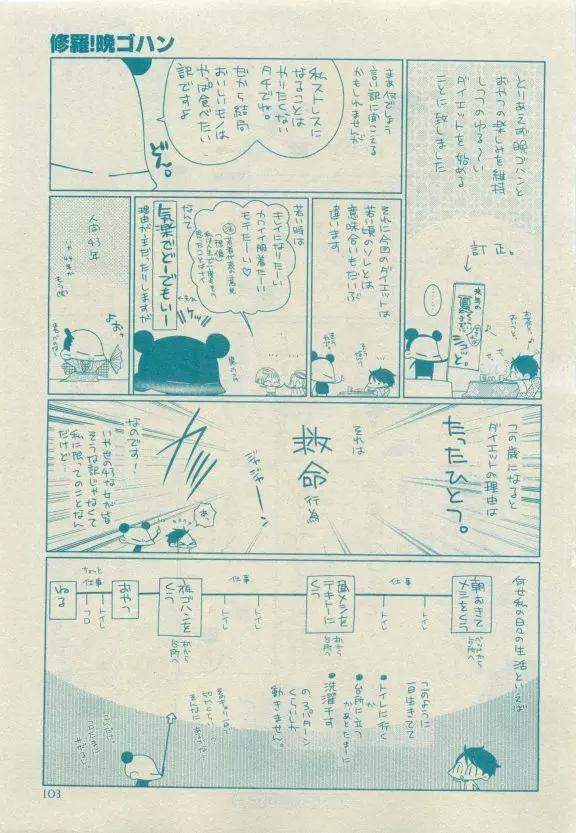 修羅!晩ゴハン
とりあえず晩ゴハンと
おやつの楽しみを維持
しつつのゆる〜い
ダイエットを始める
ことに致しました
訂正。
まあ何でしょう
言い訳に聞こえる
かもしれませんが
私ストレスに
なることは
やりたくない
タチでね。
だから結局
おいしいモノは
やっぱ食べたい
訳ですよ
どん。
それに今回のダイエットは
若い頃のソレとは
意味合いもだいぶ
違います
若い時は
キレイになりたーい
カワイイ服着たーい
モテたーい♡
なんて
気楽でどーでもいー
理由が主だったりしますが
人間43年
この歳になると
ダイエットの理由は
たったひとつ。
それは
救命
行為
ジャジャーン
カッ
なのです!
あ
いや世の43な女が皆
そうな訳じゃなくて
私に限ってのことなん
だけど…
何せ私の日々の生活といえば
朝おきて
メシをくう
仕事
トイレ
昼メシを
テキトーに
くう
仕事
トイレ
トイレ
夜ゴハンを
くう
おやつ
ちょっと
仕事
トイレ
フロ
ねる
このように
一日生きてて
●トイレに行く
か
●台所に立つ
かあとたまーに
●洗濯干す
の3パターン
くらいしか
動きません。
103